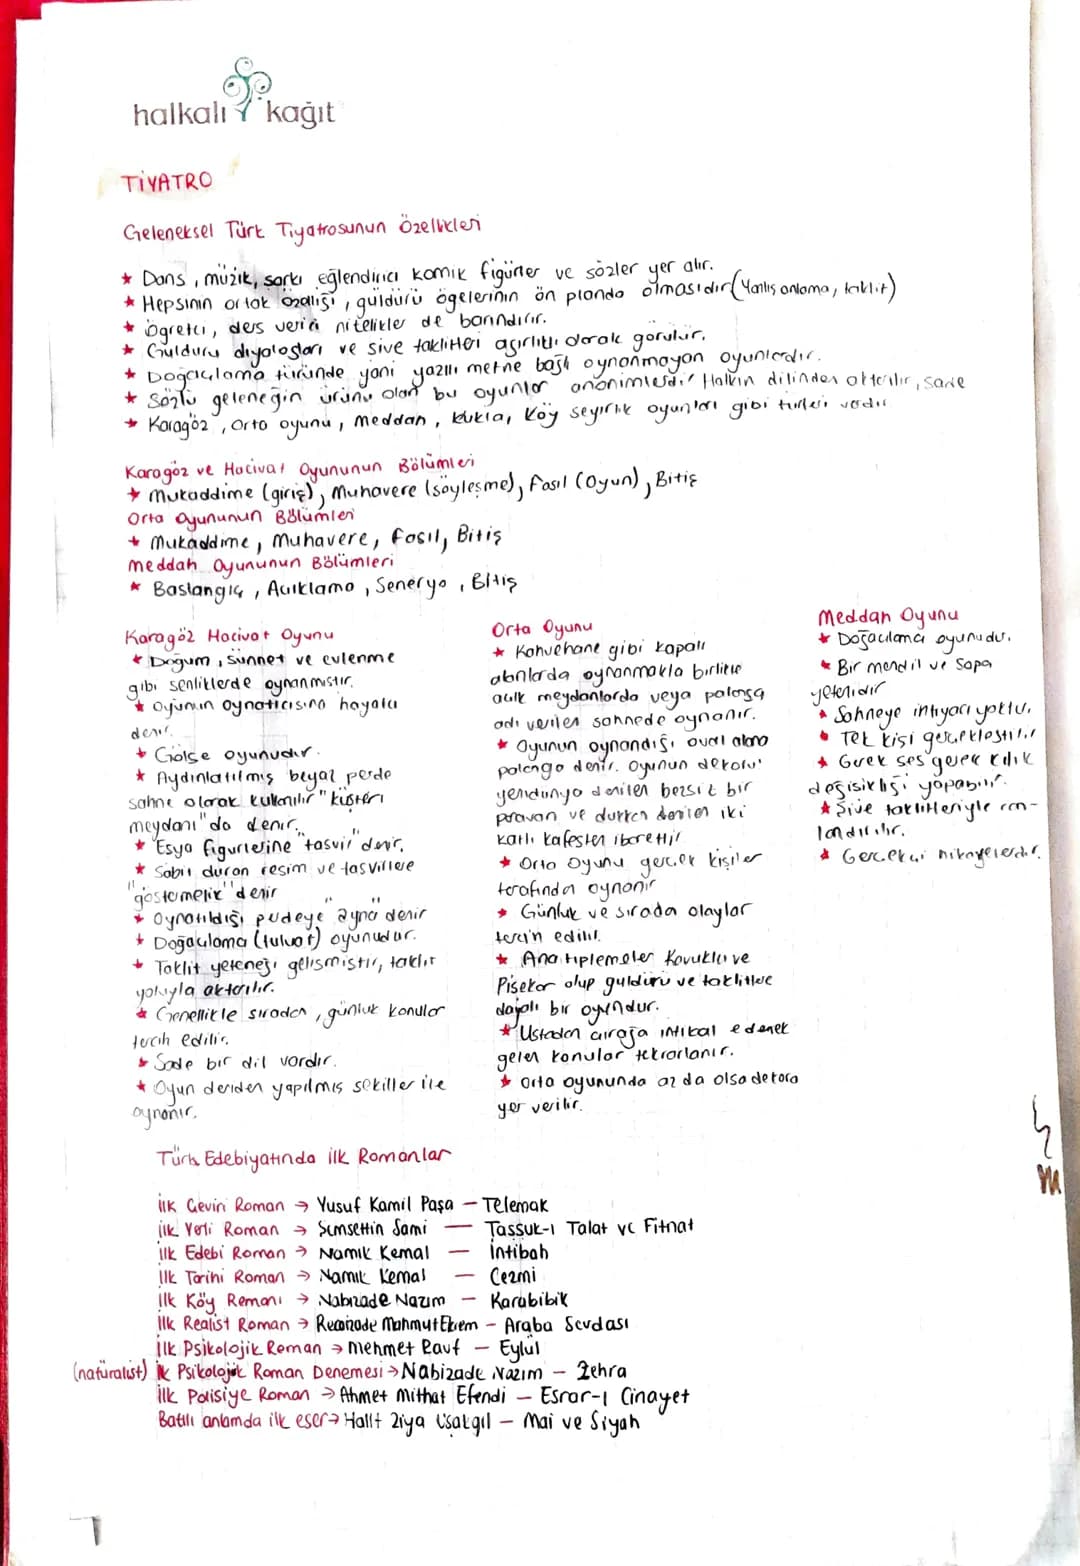 halkalı kağıt
TİYATRO
Geleneksel Türk Tiyatrosunun Özellikleri
★ Dans, müzik, şarkı eğlendirici komik figürler ve sözler yer alır.
★ Hepsinin ortak özelliği, güldürü ögelerinin ön planda olmasıdır (Yanlış anlama, taklit)
★ öğretici, ders verici nitelikler de barındırır.
★ Güldürü diyalogları ve şive taklitleri ağırlıklı olarak görülür.
★ Doğaçlama türünde yani yazılı metne bağlı oynanmayan oyunlardır.
★ Sözlü geleneğin ürünü olan bu oyunlar anonimlerdir Halkın dilinden aktarılır, sade
★ Karagöz, Orta oyunu, Meddah, kukla, köy seyirlik oyunları gibi türleri vardır
Karagöz ve Hacivat Oyununun Bölümleri
★ Mukaddime (giriş), Muhavere (söyleşme), Fasıl (Oyun), Bitiş
Orta Oyununun Bölümleri
★ Mukaddime, Muhavere, Fasıl, Bitiş
Meddah Oyununun Bölümleri
★ Baslangıç, Açıklama, Seneryo, Bitiş
Karagöz Hacivat Oyunu
★ Doğum, Sünnet ve evlenme
gibi senliklerde oynanmıstır.
★ Oyunun oynatıcısına hayalcı
denir.
★ Gölge oyunudur.
★ Aydınlatılmış beyaz perde
sahne olarak kullanılır "küşteri
meydanı" da denir.
★ Esya figurlerine "tasvir" denir.
★ Sabit duran resim ve tasvirlere
"göstermelik" denir
★ Oynatıldığı perdeye "ayna" denir
★ Doğaçlama (tuluat) oyunudur.
★ Taklit yeteneği gelismistir, taklit
yoluyla aktarılır.
★ Genellikle sıradan, günlük konular
tercih edilir.
★ Sade bir dil vardır.
★ Oyun deriden yapılmış sekiller ile
oynanır.
Orta Oyunu
★ Kahvehane gibi kapalı
alanlarda oynanmakla birlikte
açık meydanlarda veya palanga
adı verilen sahnede oynanır.
★ Oyunun oynandığı oval alana
palanga denir. Oyunun dekoru
yenidünya denilen bezsiz bir
paravan ve dükkan denilen iki
katlı kafesten ibarettir
★ Orta Oyunu gerçek kişiler
tarafından oynanır
★ Günlük ve sırada olaylar
tercih edilir.
★ Ana tiplemeler Kavuklu ve
Pişekar olup güldürü ve taklitlere
dayalı bir oyundur.
★ Ustadan çırağa intikal ederek
gelen konular tekrarlanır.
★ Orta oyununda az da olsa dekora
yer verilir.
Meddah Oyunu
★ Doğaçlama oyunudur.
★ Bir mendil ve Sopa
yeterlidir
★ Sahneye ihtiyacı yoktur.
★ Tek kisi gerçeklestirir
★ Gerek ses gerek kılık
değisikliği yapabilir.
★ Şive taklitleriyle can-
landırılır.
★ Gerçekçi hikayelerdir.
Türk Edebiyatında İlk Romanlar
İlk Çeviri Roman → Yusuf Kamil Paşa — Telemak
İlk Yerli Roman → Şemsettin Sami — Taşşuk-ı Talat ve Fitnat
İlk Edebi Roman → Namık Kemal — İntibah
İlk Tarihi Roman → Namık Kemal — Cezmi
İlk Köy Romanı → Nabizade Nazım — Karabibik
İlk Realist Roman → Recaizade Mahmut Ekrem — Araba Sevdası
İlk Psikolojik Roman → Mehmet Rauf — Eylül
(natüralist) İlk Psikolojik Roman Denemesi → Nabizade Nazım — Zehra
İlk Polisiye Roman → Ahmet Mithat Efendi — Esrar-ı Cinayet
Batılı anlamda ilk eser → Halit Ziya Uşaklıgil — Mai ve Siyah